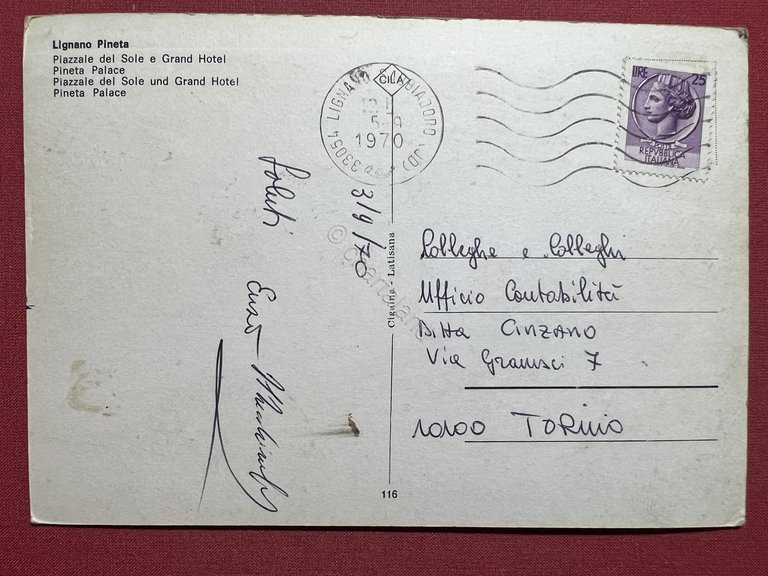 Lignano Pineta
Piazzale del Sole e Grand Hotel
Pineta Palace
Piazzale del Sole und Grand Hotel
Pineta Palace
33054 LIGNANO SABBIADORO (UD)
1970
LIRE 25
POSTE
REPVBBLICA
ITALIANA
3/9/70
Saluti
Enzo
Cigaina - Latisana
Colleghe e Colleghi
Ufficio Contabilità
Ditta CINZANO
Via Gramsci 7
10100 TORINO
116